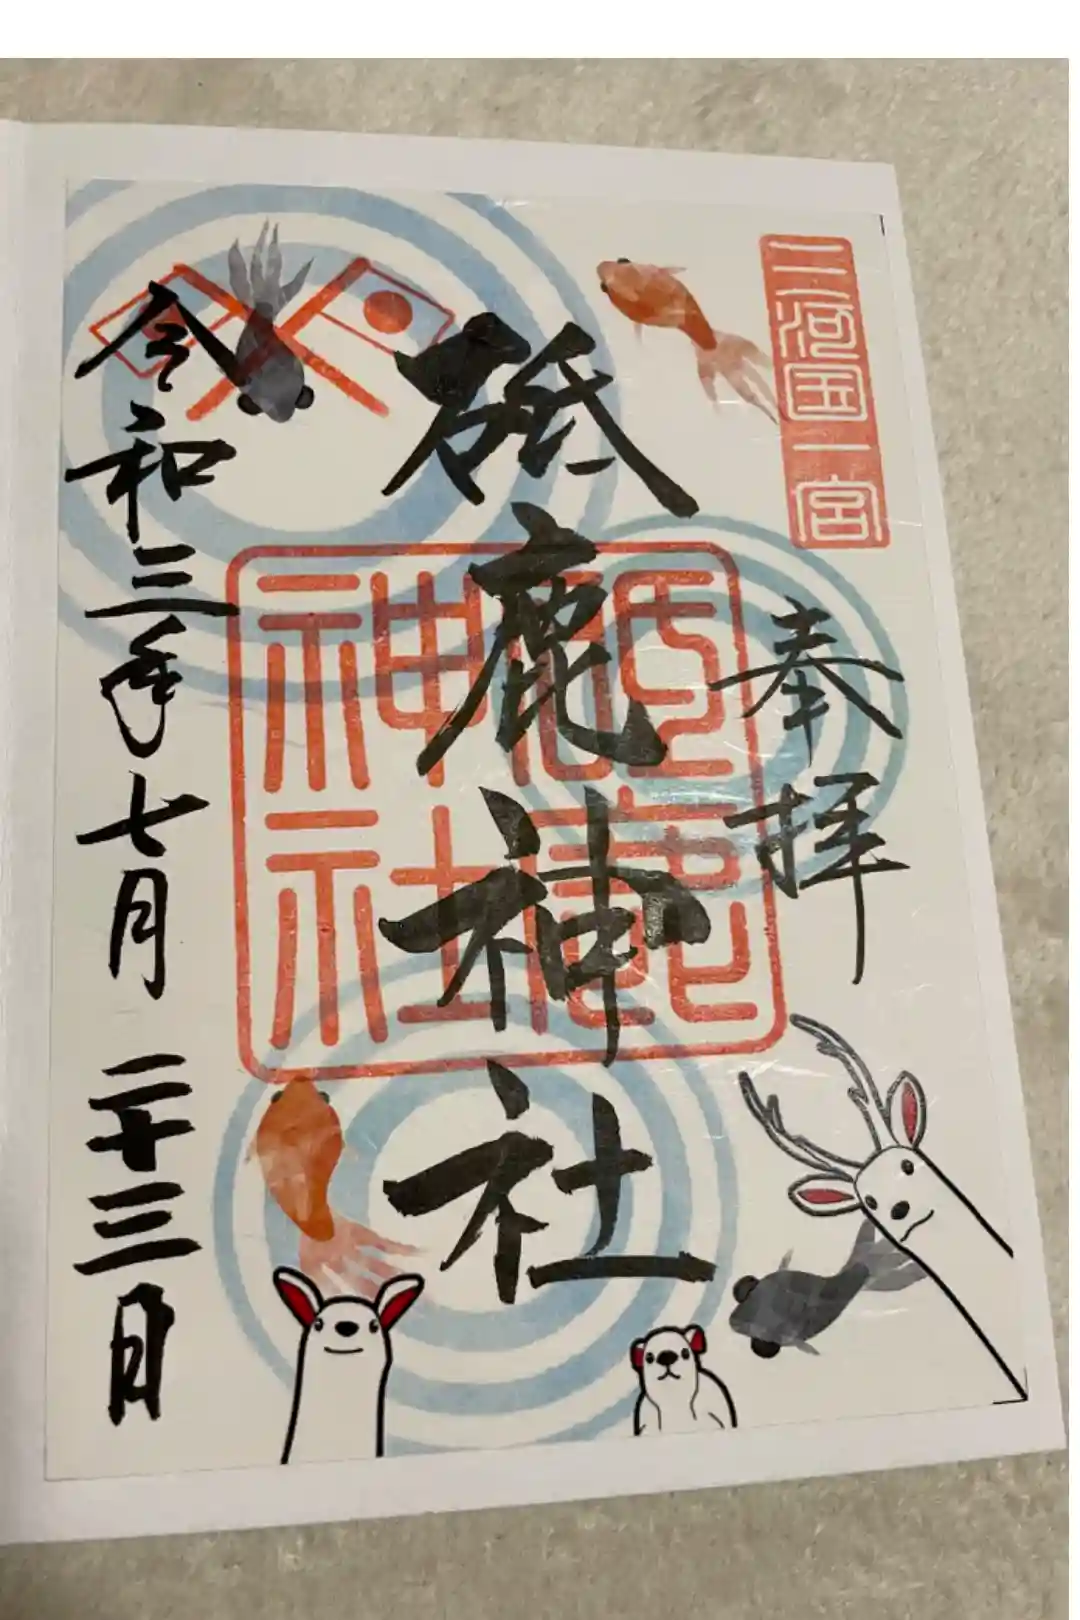 三河国一宮
奉拝
砥鹿神社
砥鹿神社
令和三年七月二十三日